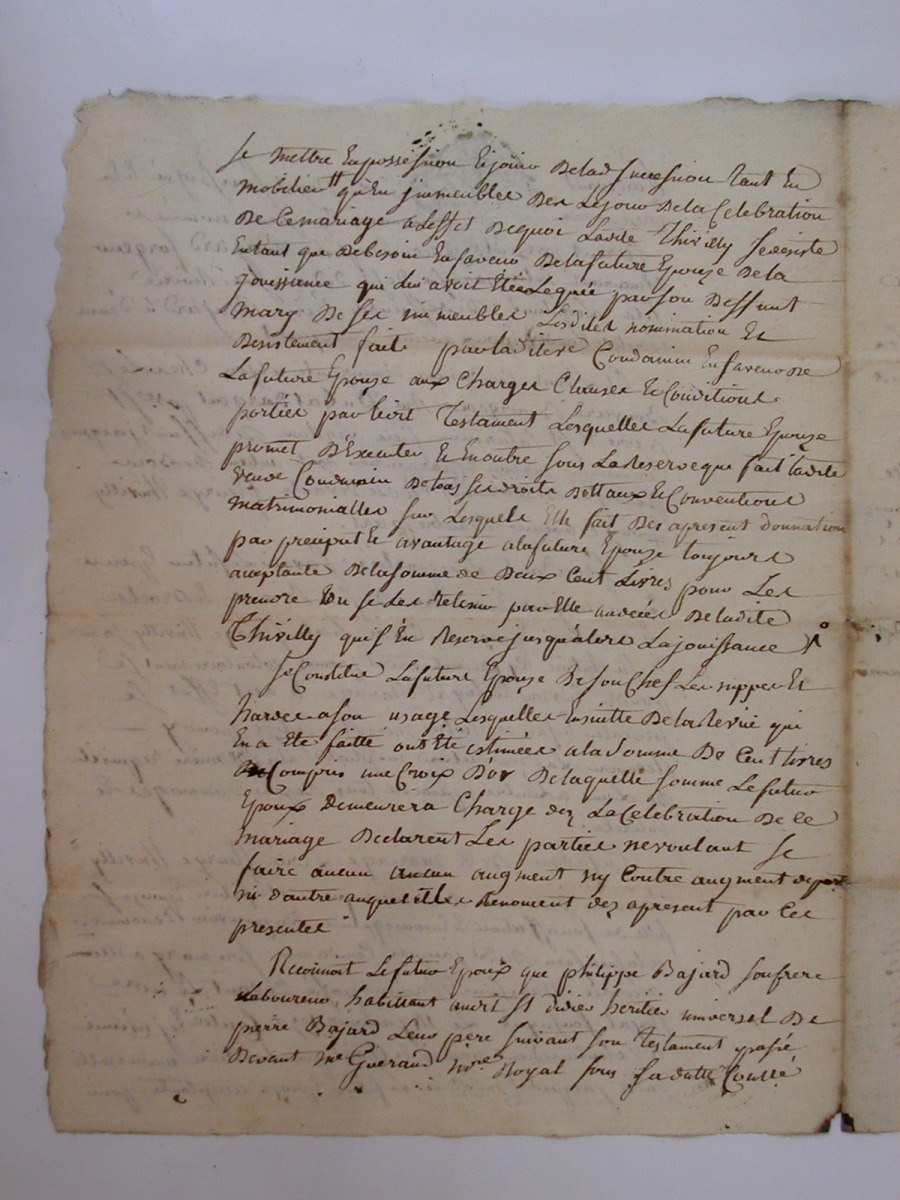 se mettre Enpossession Ejouir Delad succession tant En
mobilier qu'En jmmeubles Des Lejour DelaCelebration
De Cemariage a Leffet Dequoi Ladte Thivilly sedesiste
Entant que Debesoin Enfaveur Delafuture Epouze Dela
jouissance qui Lui avoit Eté Leguée par son Deffunt
mary De ses immeubles Lesdites nomination Et
Desistement faits par Ladite Coudamin Enfaveur De
Lafuture Epouze aux Charges Clauses Et Conditions
portées par Testament Lesquelles Lafuture Epouze
promet D'Executer Et Enoutre sous Lareserve que fait Ladite
veuve Coudamin Detous ses droits Dottaux Et Conventions
matrimonialles sur Lesquels Elle fait Des apresent donnation
par preciput Et avantage alafuture Epouze toujours
acceptante Delasomme de Deux Cent Livres pour Les
prendre Ou se Les retenir par Elle audecés Deladite
Thivilly qui s'En Reserve jusqu'alors Lajouissance
se Constitue Lafuture Epouze De son Chef Les nippes Et
hardes ason usage Lesquelles Ensuitte Delarevüe qui
En a Eté faitte ont Eté Estimées ala somme De Cent livres
Compris une Croix D'or Delaquelle somme Lefutur
Epoux Demeurera Chargé dez LaCelebration De ce
mariage Declarent Les parties nevoulant se
faire aucun aucun augment ny Contre augment depart
ni dautre auquel Elles Renoncent dez apresent par Ces
presentes
Reconnoit Lefutur Epoux que philippe Bajard sonfrere
Laboureur habittant audit St didier heritier universel De
pierre Bajard Leur pere suivant son testament passé
Devant Me Guerand nore Royal sous sadatte Conllé